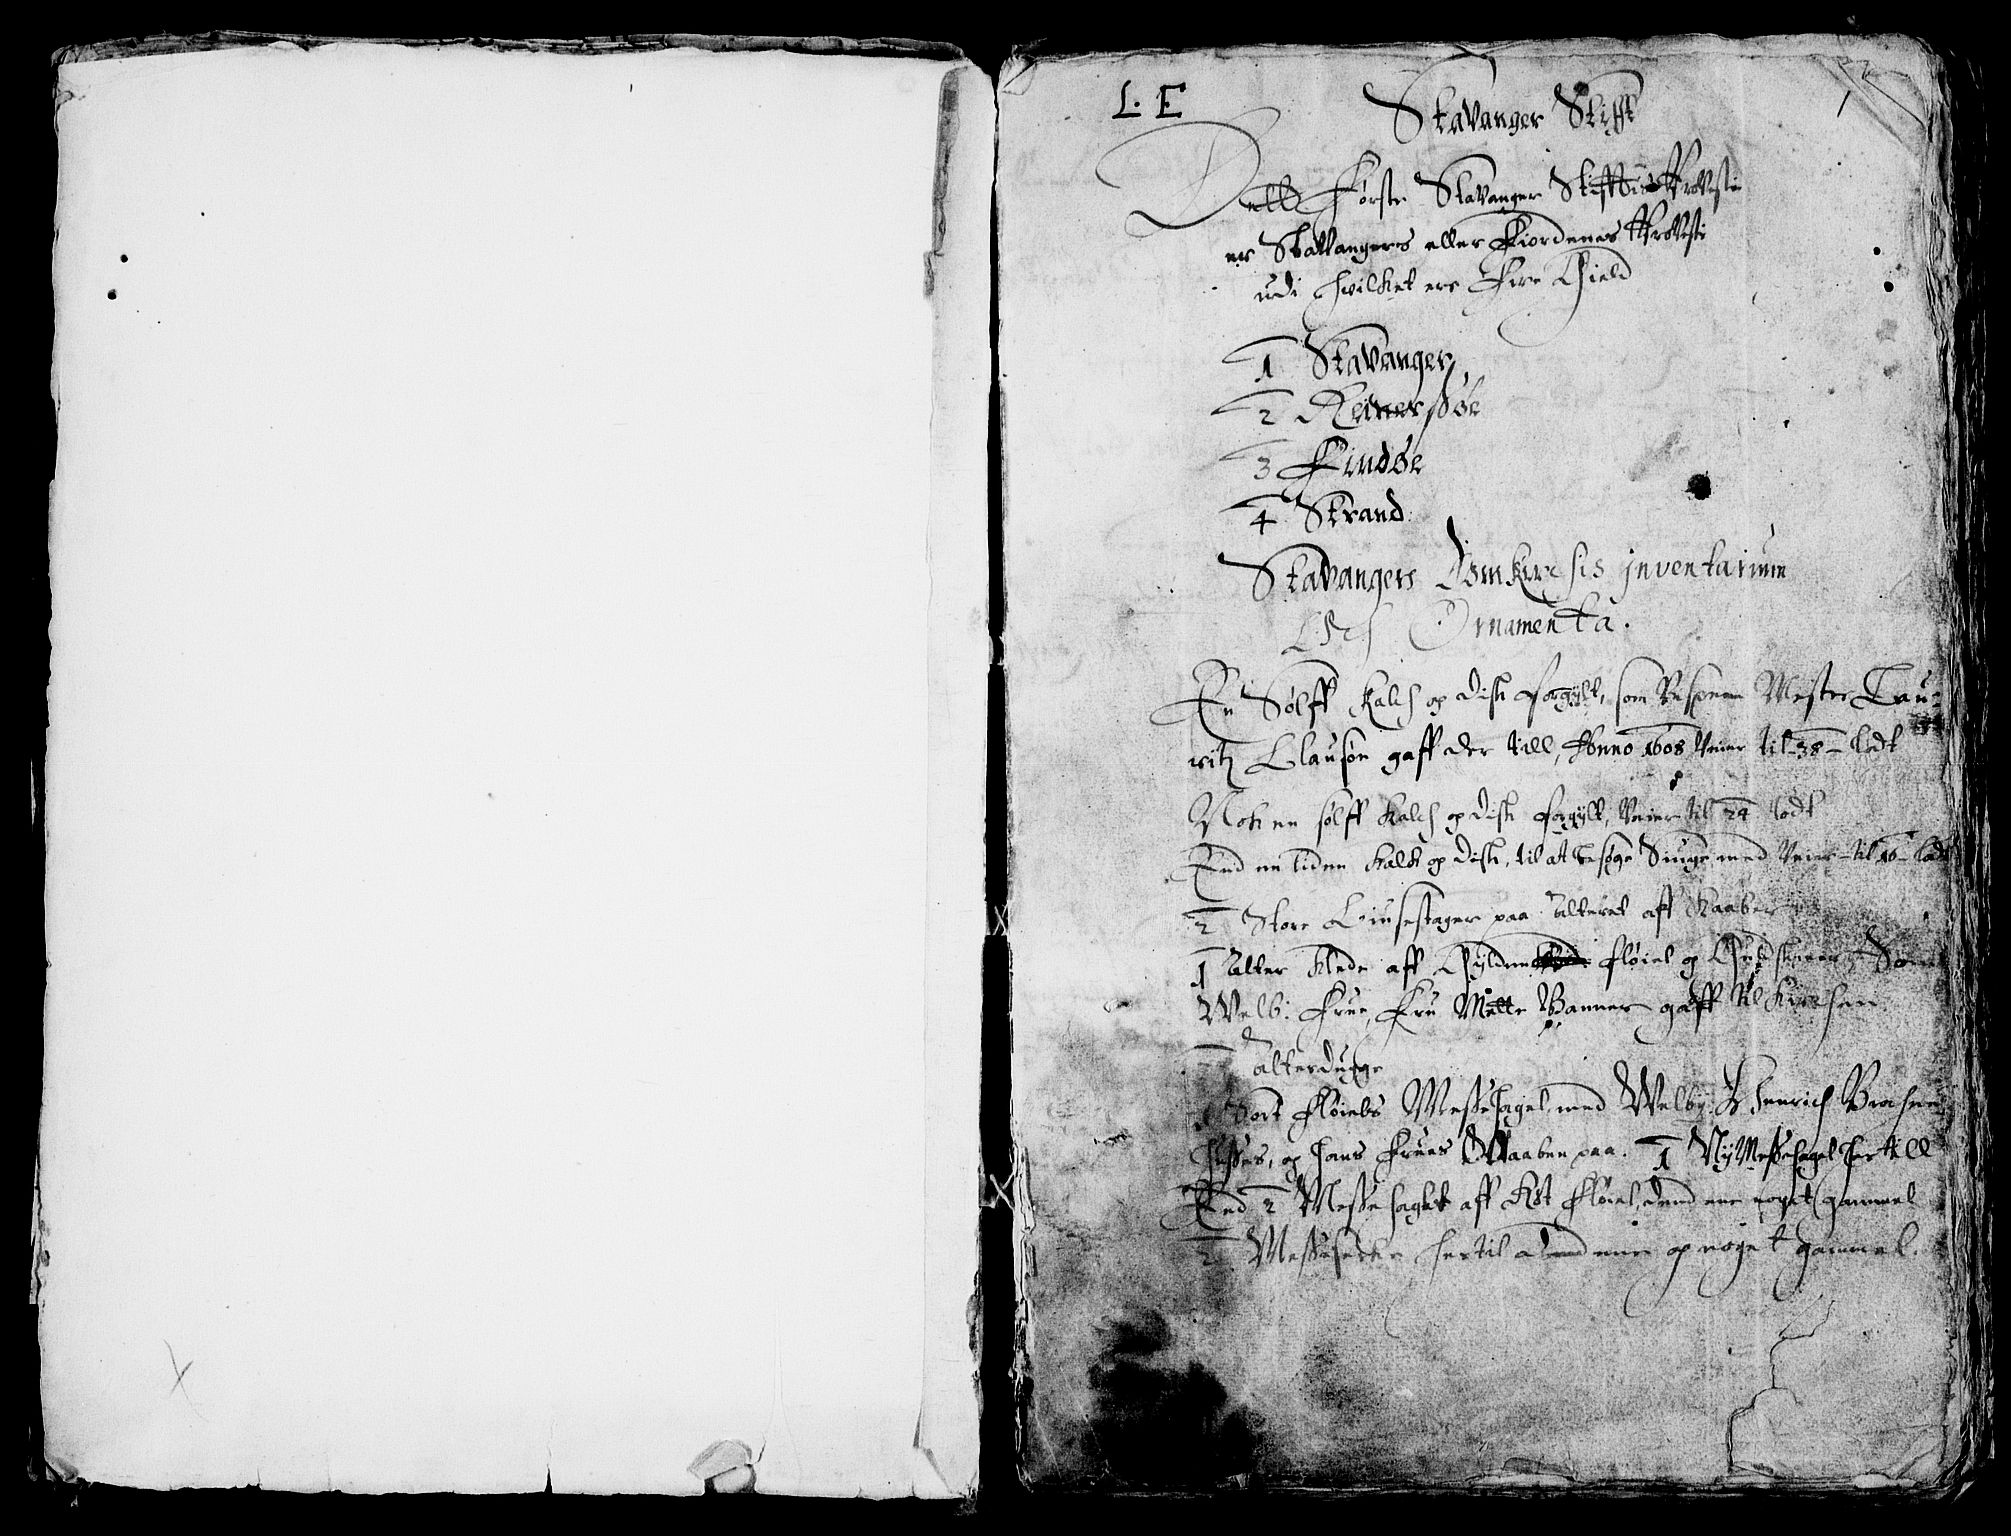 L. E
Stavanger Stifft
1
Dett Første Stavanger Stifftis Provesti
er Stavangers eller Fiordenes Provesti
udi huilket ere Fire Gield
1 Stavanger
2 Rennersøe
3 Findøe
4 Strand
Stavangers Domkirchis inventarium
Och Ornamenta.
En Sølff kalch og disk forgylt, som Mester Lau-
ritz Clausøn gaff der till, Anno 1608 Veier til 38 lodt
Nok en sølff kalch og disk forgylt, Veier til 24 lodt
End en liden kalk og disk, til at besøge Siuge med Veier til 16 lodt
2 Store Liusestager paa alteret aff Kaaber
1 alter klede aff Gylden fløiel og Som
Welb: Frue, Fru Mette Banner gaff til kirchen
alterduge
1 Sort fløiels Messehagel med Welby: H Henrich
og hans Frues Waaben paa. 1 Ny Messehagel her till
End 2 Messehagle aff Røt Fløiel, dend ene noget gammel
2 Messeserke hertil dend ene og noget gammel.